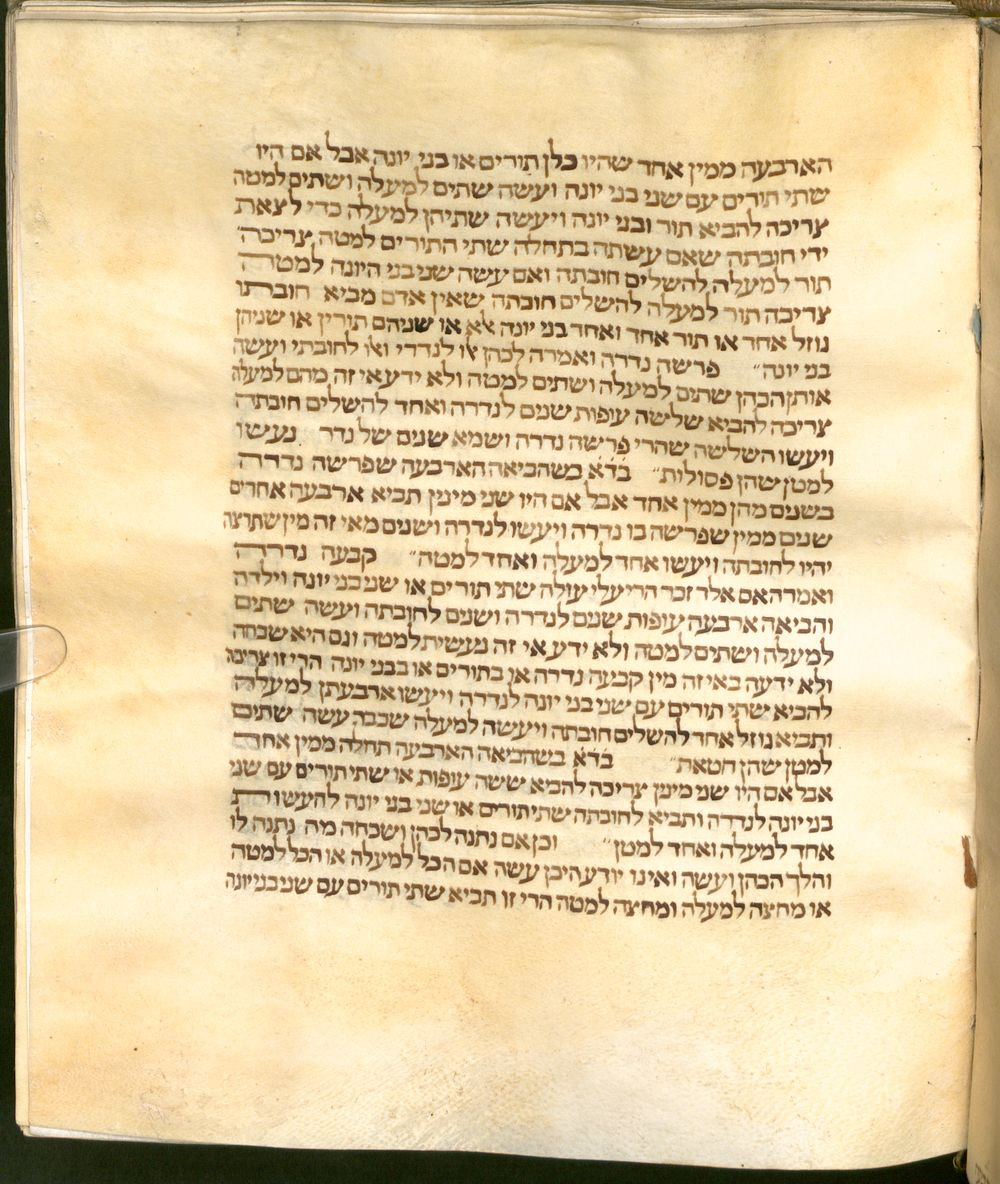 הארבעה ממין אחד שהיו כלן תורים או בני יונה אבל אם היו
שתי תורים עם שני בני יונה ועשה שתים למעלה ושתים למטה
צריכה להביא תור ובני יונה ויעשה שתיהן למעלה כדי לצאת
ידי חובתה שאם עשתה בתחלה שתי התורים למטה צריכה
תור למעלה להשלים חובתה ואם עשה שני בני היונה למטה
צריכה תור למעלה להשלים חובתה שאין אדם מביא חובתו
גוזל אחד או תור אחד ואחד בני יונה אלא או שניהם תורין או שניהן
בני יונה״ פרשה נדרה ואמרה לכהן אלו לנדרי ואלו לחובתי ועשה
אותן הכהן שתים למעלה ושתים למטה ולא ידע אי זה מהם למעלה
צריכה להביא שלישה עופות שנים לנדרה ואחד להשלים חובתה
ויעשו השלשה שהרי פרשה נדרה ושמא שנים של נדר נעשו
למטן שהן פסולות״ בד׳א כשהביאה הארבעה שפרשה נדרה
בשנים מהן ממין אחד אבל אם היו שני מינין תביא ארבעה אחרים
שנים ממין שפרשה בו נדרה ויעשו לנדרה ושנים מאי זה מין שתרצה
יהיו לחובתה ויעשו אחד למעלה ואחד למטה״ קבעה נדרה
ואמרה אם אלד זכר הרי עלי עולה שתי תורים או שני בני יונה וילדה
והביאה ארבעה עופות שנים לנדרה ושנים לחובתה ועשה שתים
למעלה ושתים למטה ולא ידע אי זה נעשית למטה וגם היא שכחה
ולא ידעה באיזה מין קבעה נדרה או בתורים או בבני יונה הרי זו צריכה
להביא שתי תורים עם שני בני יונה לנדרה ויעשו ארבעתן למעלה
ותביא גוזל אחד להשלים חובתה ויעשה למעלה שכבר עשה שתים
למטן שהן חטאת״ בד׳א בשהביאה הארבעה תחלה ממין אחד
אבל אם היו שני מינין צריכה להביא ששה עופות או שתי תורים עם שני
בני יונה לנדרה ותביא לחובתה שתי תורים או שני בני יונה להעשות
אחד למעלה ואחד למטן״ וכן אם נתנה לכהן ושכחה מה נתנה לו
והלך הכהן ועשה ואינו יודע היכן עשה אם הכל למעלה או הכל למטה
או מחצה למעלה ומחצה למטה הרי זו תביא שתי תורים עם שני בני יונה